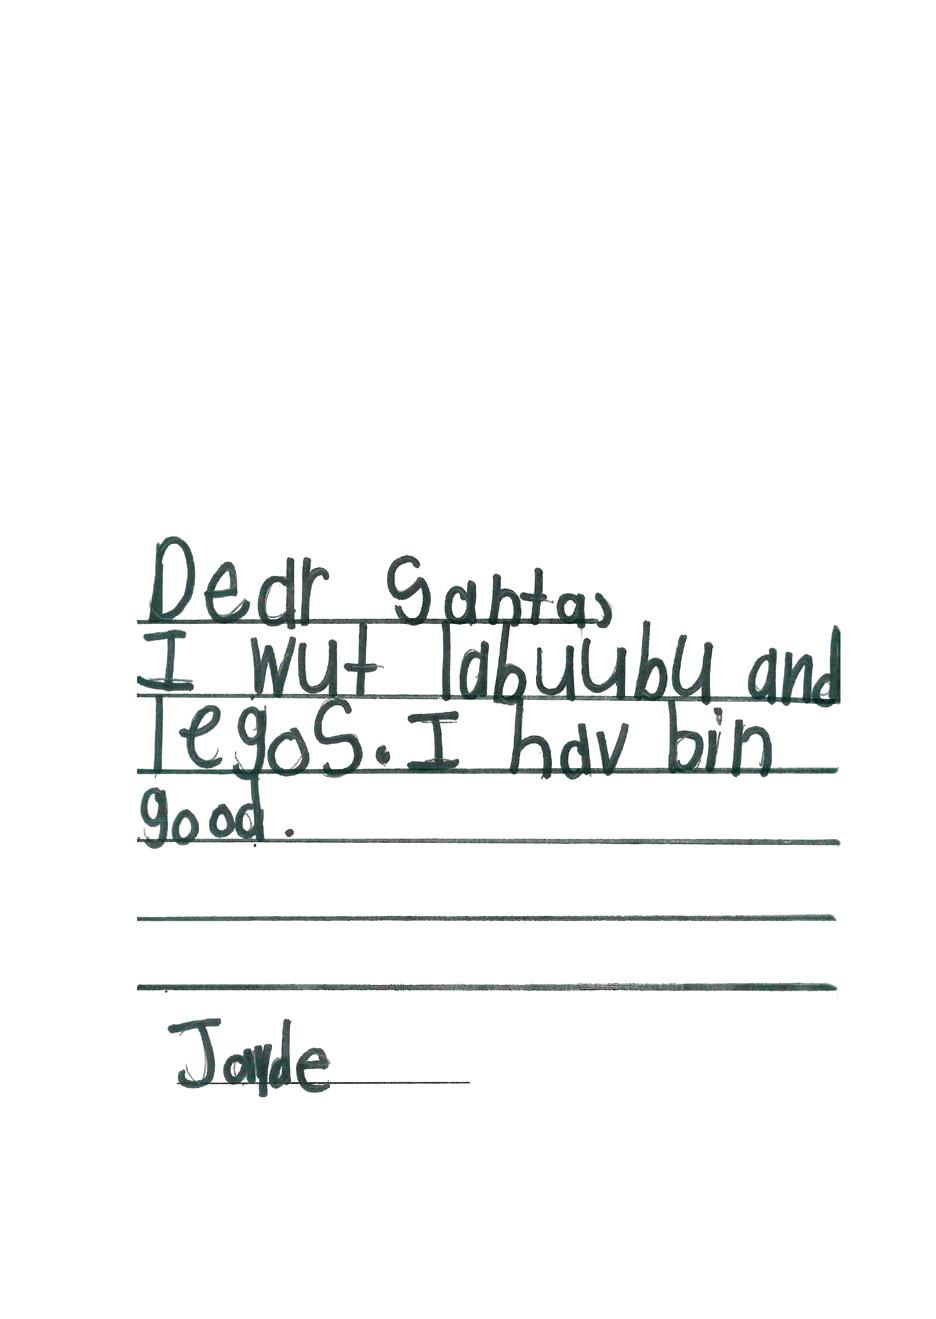 Dear Santa,
I wut labuubu and
legos. I hav bin
good.
Jayde